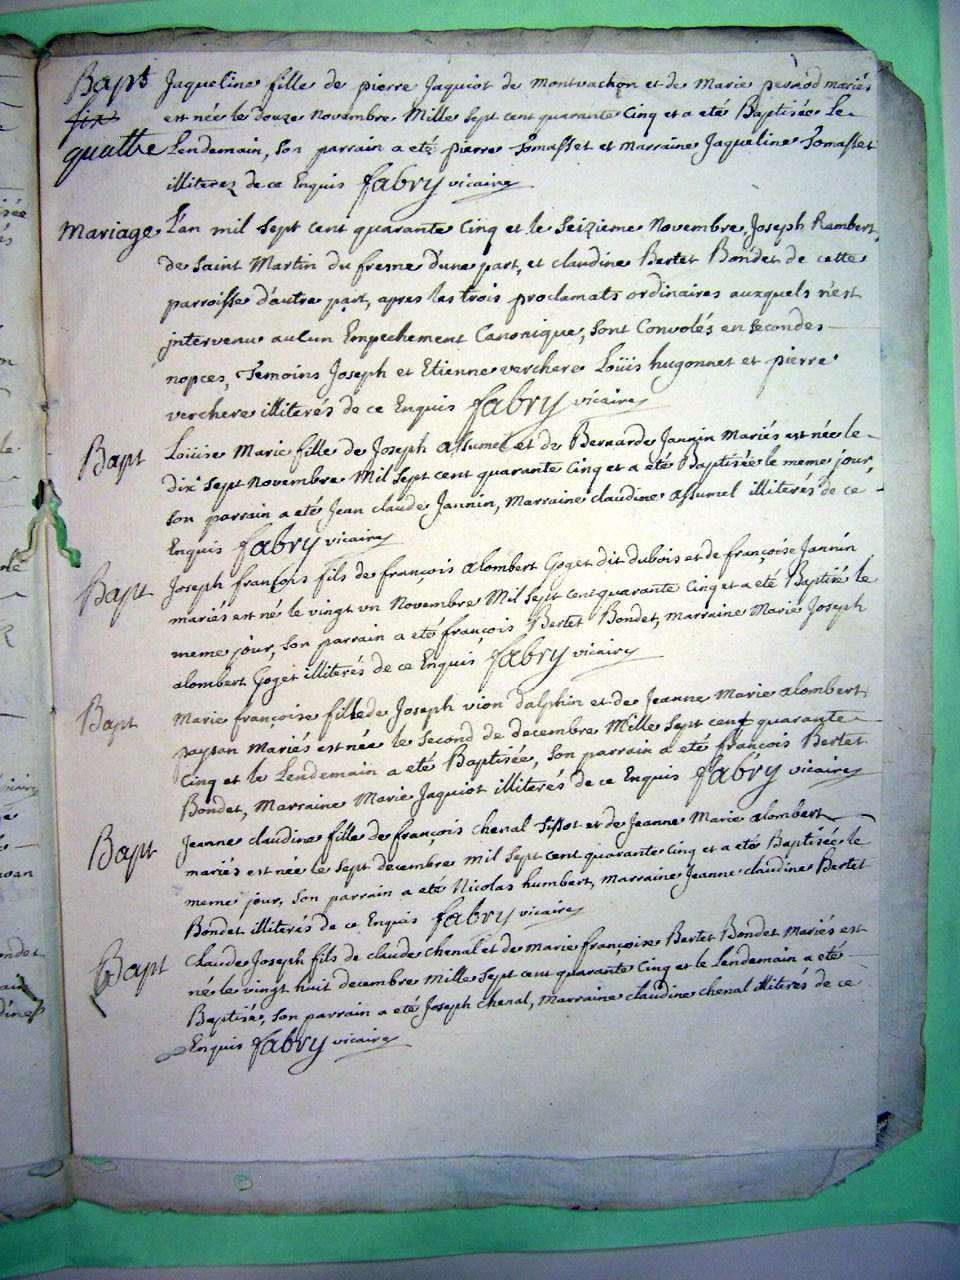 Bapt Jaqueline fille de pierre Jaquiot de Montvachon et de Marie pernod mariés
six est née le douze Novembre Mille Sept cent quarante Cinq et a eté Baptisée Le
quattre Lendemain, Son parrain a eté pierre Tomasset et Marraine Jaqueline Tomasset
illiterez de ce Enquis fabry vicaire
Mariage L'an mil Sept Cent quarante Cinq et le Seizieme Novembre, Joseph Rambert,
de Saint Martin du fresne d'une part, et claudine Bertet Bondet de cette
parroisse d'autre part, apres les trois proclamats ordinaires auxquels n'est
intervenu aucun Empechement Canonique, Sont Convolés en Secondes
nopces, Temoins Joseph et Etienne verchere Loüis hugonnet et pierre
verchere illiterés de ce Enquis fabry vicaire
Bapt Loüise Marie fille de Joseph assumel et de Bernarde Jannin Mariés est née le
dix Sept Novembre Mil Sept cent quarante Cinq et a eté Baptisée le meme jour,
Son parrain a eté Jean claude Jannin, Marraine claudine assumel illiterés de ce
Enquis fabry vicaire
Bapt Joseph françois fils de françois alombert Goget dit dubois et de françoise Jannin
mariés est né le vingt un Novembre Mil Sept cent quarante Cinq et a eté Baptisé le
meme jour, Son parrain a eté françois Bertet Bondet, marraine Marie Joseph
alombert Goget illiterés de ce Enquis fabry vicaire
Bapt Marie françoise fille de Joseph vion dalphin et de Jeanne Marie alombert
paysan Mariés est née le Second de decembre Mille Sept cent quarante
Cinq et le Lendemain a eté Baptisée, Son parrain a eté françois Bertet
Bondet, Marraine Marie Jaquiot illiterés de ce Enquis fabry vicaire
Bapt Jeanne claudine fille de françois chenal Tissot et de Jeanne Marie alombert
mariés est née le Sept decembre Mil Sept cent quarante Cinq et a eté Baptisée le
meme jour, Son parrain a eté Nicolas humbert, Marraine Jeanne claudine Bertet
Bondet illiterés de ce Enquis fabry vicaire
Bapt Claude Joseph fils de claude chenal et de marie françoise Bertet Bondet Mariés est
né le vingt huit decembre Mille Sept cent quarante Cinq et le Lendemain a eté
Baptisé, Son parrain a eté Joseph chenal, Marraine claudine chenal illiterés de ce
Enquis fabry vicaire